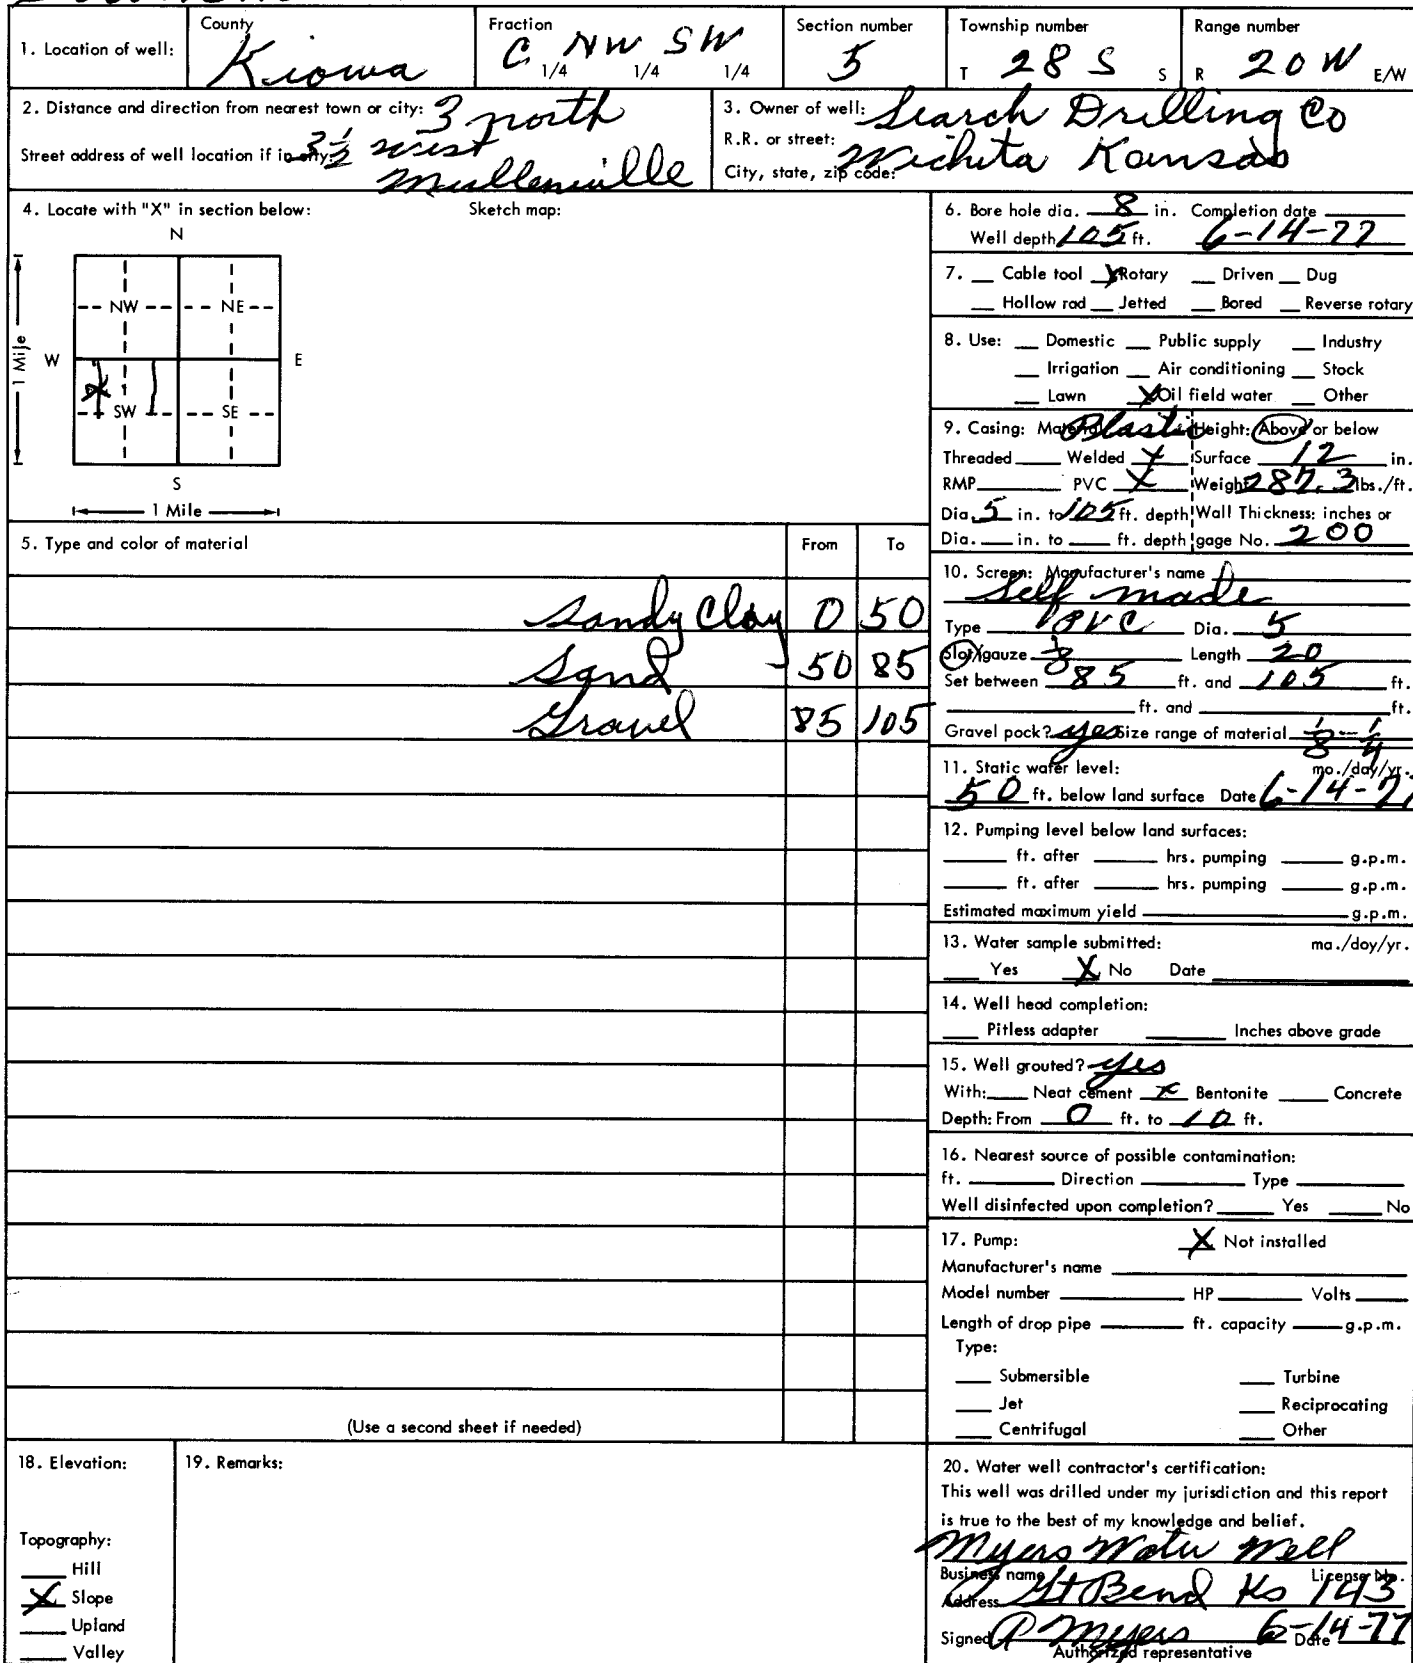 1. Location of well: County Kiowa Fraction C 1/4 NW 1/4 SW 1/4 Section number 5 Township number T 28 S S Range number R 20 W E/W
2. Distance and direction from nearest town or city: 3 north
Street address of well location if in city: 3 1/2 west
Mullenville
3. Owner of well: Search Drilling Co
R.R. or street:
City, state, zip code: Wichita Kansas
4. Locate with "X" in section below: Sketch map:
N
NW NE
1 Mile W E
X
SW SE
S
1 Mile
5. Type and color of material From To
Sandy Clay 0 50
Sand 50 85
Gravel 85 105
(Use a second sheet if needed)
6. Bore hole dia. 8 in. Completion date
Well depth 105 ft. 6-14-77
7. __ Cable tool X Rotary __ Driven __ Dug
__ Hollow rad __ Jetted __ Bored __ Reverse rotary
8. Use: __ Domestic __ Public supply __ Industry
__ Irrigation __ Air conditioning __ Stock
__ Lawn X Oil field water __ Other
9. Casing: Material Plastic Height: Above or below
Threaded ____ Welded X Surface 12 in.
RMP ____ PVC X Weight 287.3 lbs./ft.
Dia. 5 in. to 105 ft. depth Wall Thickness: inches or
Dia. __ in. to __ ft. depth gage No. 200
10. Screen: Manufacturer's name
Self made
Type PVC Dia. 5
Slot/gauze 1/8 Length 20
Set between 85 ft. and 105 ft.
____ ft. and ____ ft.
Gravel pock? yes Size range of material 1/8 - 1/4
11. Static water level: mo./day/yr.
50 ft. below land surface Date 6-14-77
12. Pumping level below land surfaces:
____ ft. after ____ hrs. pumping ____ g.p.m.
____ ft. after ____ hrs. pumping ____ g.p.m.
Estimated maximum yield ____ g.p.m.
13. Water sample submitted: ma./doy/yr.
__ Yes X No Date ____
14. Well head completion:
__ Pitless adapter ____ Inches above grade
15. Well grouted? yes
With: __ Neat cement X Bentonite __ Concrete
Depth: From 0 ft. to 10 ft.
16. Nearest source of possible contamination:
ft. ____ Direction ____ Type ____
Well disinfected upon completion? ____ Yes ____ No
17. Pump: X Not installed
Manufacturer's name ____
Model number ____ HP ____ Volts ____
Length of drop pipe ____ ft. capacity ____ g.p.m.
Type:
__ Submersible __ Turbine
__ Jet __ Reciprocating
__ Centrifugal __ Other
18. Elevation:
Topography:
__ Hill
X Slope
__ Upland
__ Valley
19. Remarks:
20. Water well contractor's certification:
This well was drilled under my jurisdiction and this report
is true to the best of my knowledge and belief.
Myers Water Well
Business name License No.
Address Gt Bend Ks 143
Signed P Myers 6-14-77 Date
Authorized representative